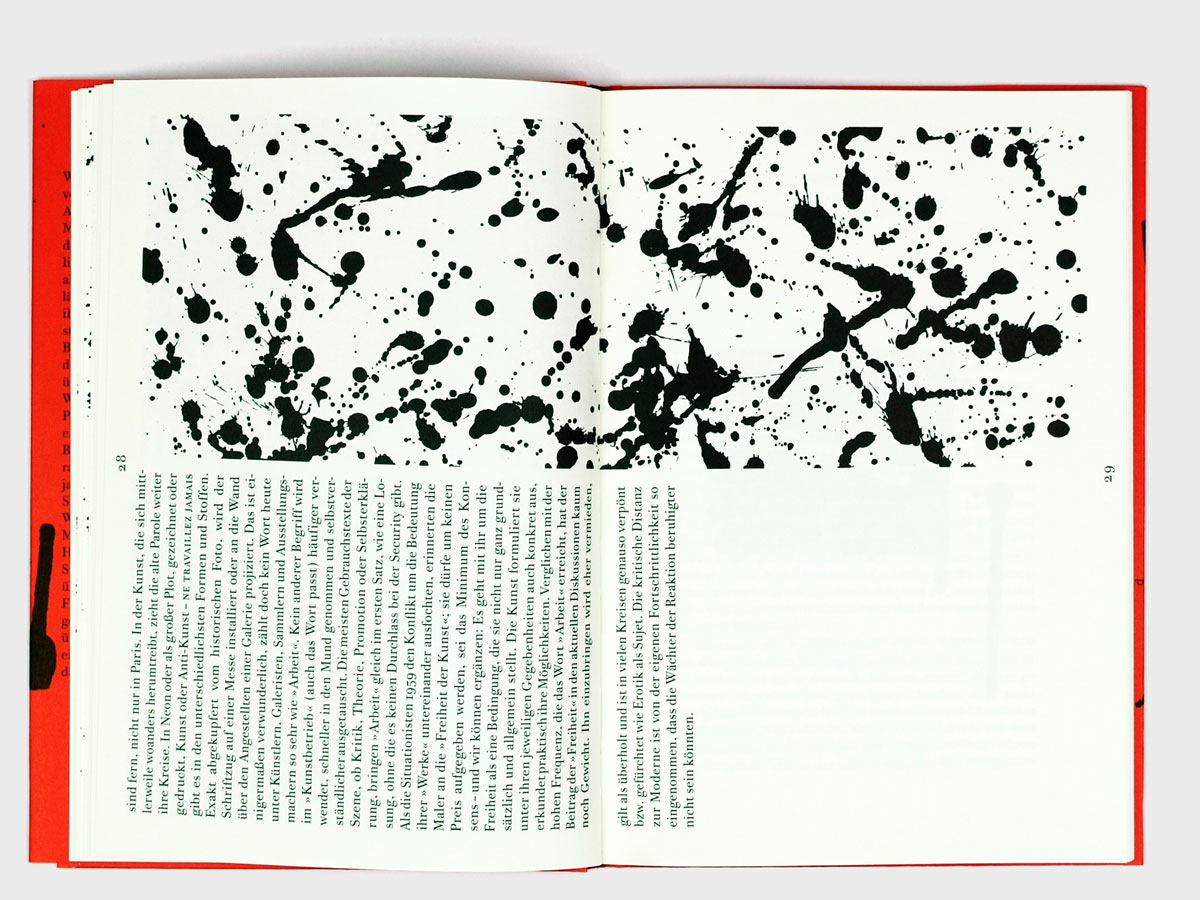 28
sind fern, nicht nur in Paris. In der Kunst, die sich mitt-
lerweile woanders herumtreibt, zieht die alte Parole weiter
ihre Kreise. In Neon oder als großer Plot, gezeichnet oder
gedruckt, Kunst oder Anti-Kunst – NE TRAVAILLEZ JAMAIS
gibt es in den unterschiedlichsten Formen und Stoffen.
Exakt abgekupfert vom historischen Foto, wird der
Schriftzug auf einer Messe installiert oder an die Wand
über den Angestellten einer Galerie projiziert. Das ist ei-
nigermaßen verwunderlich, zählt doch kein Wort heute
unter Künstlern, Galeristen, Sammlern und Ausstellungs-
machern so sehr wie »Arbeit«. Kein anderer Begriff wird
im »Kunstbetrieb« (auch das Wort passt) häufiger ver-
wendet, schneller in den Mund genommen und selbstver-
ständlicher ausgetauscht. Die meisten Gebrauchstexte der
Szene, ob Kritik, Theorie, Promotion oder Selbsterklä-
rung, bringen »Arbeit« gleich im ersten Satz, wie eine Lo-
sung, ohne die es keinen Durchlass bei der Security gibt.
Als die Situationisten 1959 den Konflikt um die Bedeutung
ihrer »Werke« untereinander ausfochten, erinnerten die
Maler an die »Freiheit der Kunst«; sie dürfe um keinen
Preis aufgegeben werden, sei das Minimum des Kon-
sens – und wir können ergänzen: Es geht mit ihr um die
Freiheit als eine Bedingung, die sie nicht nur ganz grund-
sätzlich und allgemein stellt. Die Kunst formuliert sie
unter ihren jeweiligen Gegebenheiten auch konkret aus,
erkundet praktisch ihre Möglichkeiten. Verglichen mit der
hohen Frequenz, die das Wort »Arbeit« erreicht, hat der
Beitrag der »Freiheit« in den aktuellen Diskussionen kaum
noch Gewicht. Ihn einzubringen wird eher vermieden,
29
gilt als überholt und ist in vielen Kreisen genauso verpönt
bzw. gefürchtet wie Erotik als Sujet. Die kritische Distanz
zur Moderne ist von der eigenen Fortschrittlichkeit so
eingenommen, dass die Wächter der Reaktion beruhigter
nicht sein könnten.